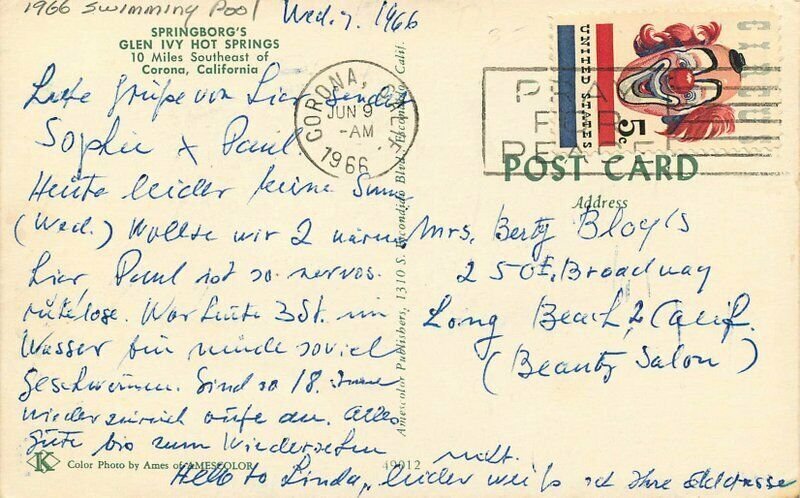 1966 Swimming Pool
Wed. 7. 1966
SPRINGBORG'S
GLEN IVY HOT SPRINGS
10 Miles Southeast of
Corona, California
Grüße von hier sendet
Sophie x Paul.
Heute leider keine Sonne
(Wed.) Wollte wir 2 wären
hier, Paul ist so nervos.
War heute 3 St. im
Wasser bin müde soviel
geschwommen. Sind so 18. June
wieder zurück rufe an. Alles
Gute bis zum Wiedersehen
Hello to Linda, leider weiß ich Ihre Adresse
nicht.
K
Color Photo by Ames of AMESCOLOR
49012
Amescolor Publishers, 1310 S. Escondido Blvd., Escondido, Calif.
CORONA, CALIF.
JUN 9
-AM
1966
PRAY
FOR
PEACE
UNITED STATES
5c
CIRCUS
POST CARD
Address
Mrs. Berty Bloy's
250 E. Broadway
Long Beach 2, Calif.
(Beauty Salon)